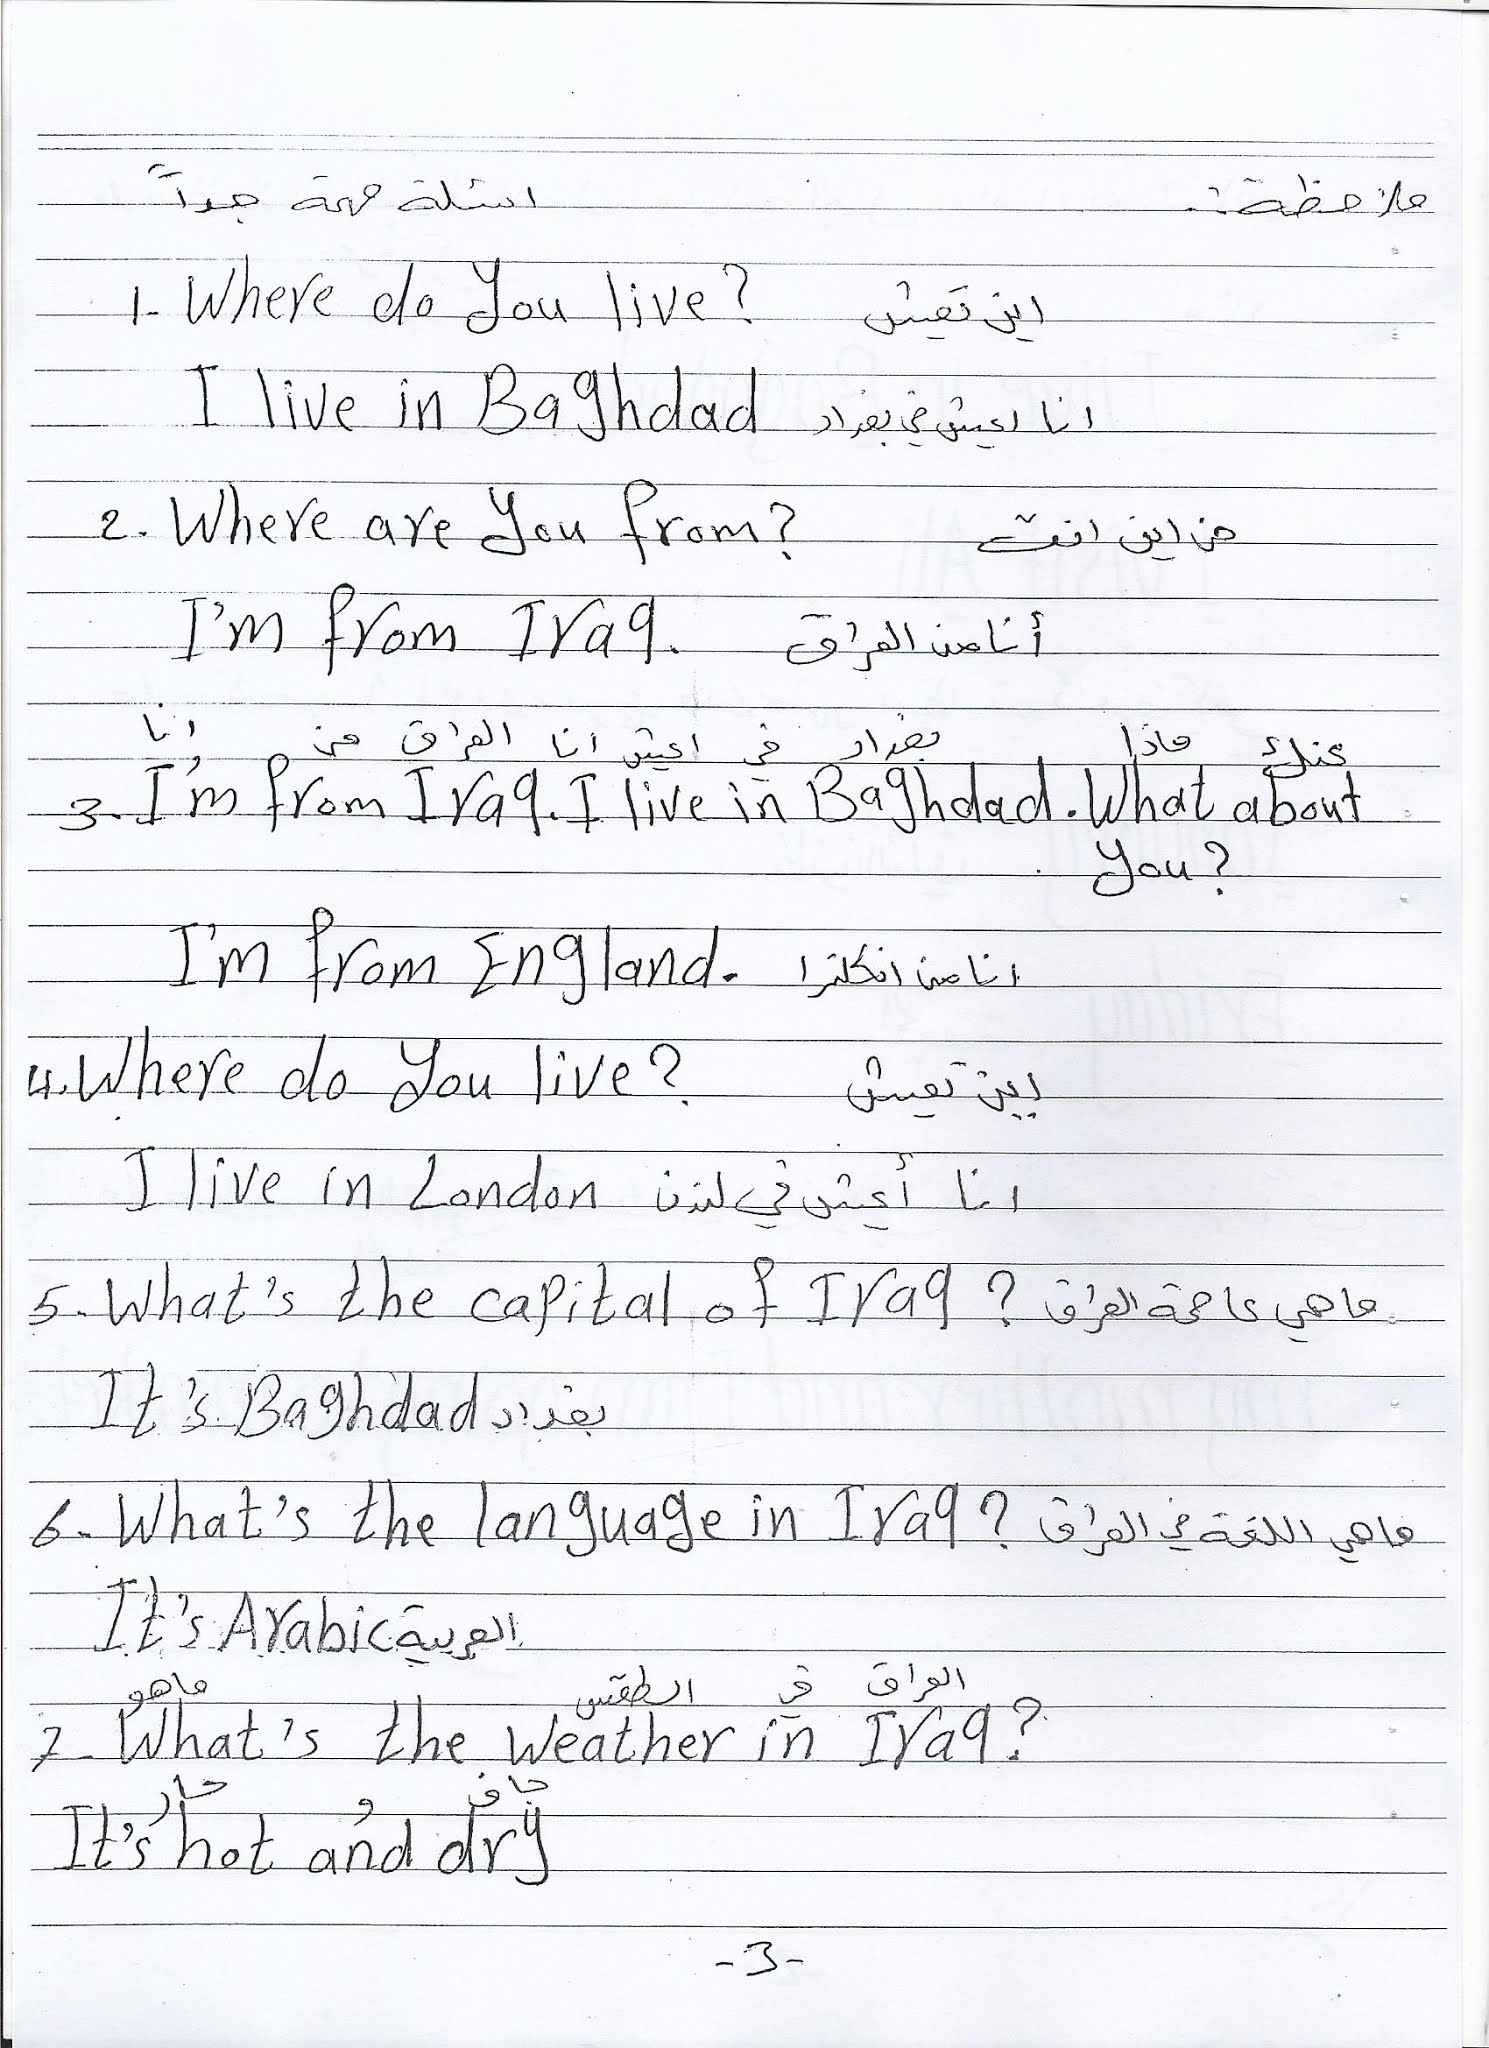 ملاحظة :. اسئلة مهمة جداً
1- Where do you live? اين تعيش
I live in Baghdad انا اعيش في بغداد
2. Where are you from? من اين انت
I'm from Iraq. أنا من العراق
انا من العراق انا اعيش في بغداد ماذا عنك
3. I'm from Iraq. I live in Baghdad. What about
you?
I'm from England. انا من انكلترا
4. Where do you live? اين تعيش
I live in London انا أعيش في لندن
5. What's the capital of Iraq? ماهي عاصمة العراق
It's Baghdad بغداد
6- What's the language in Iraq? ماهي اللغة في العراق
It's Arabic العربية
ماهو الطقس في العراق
7- What's the weather in Iraq?
حار و جاف
It's hot and dry
-3-